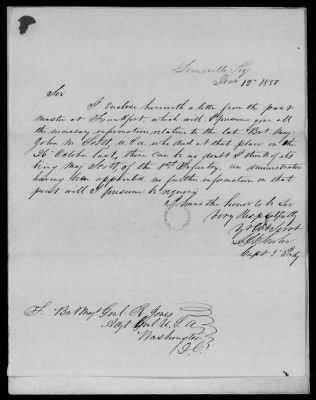 Louisville Ky
Decr 12th 1850
Sir
I enclose herewith a letter from the post
master at Frankfort, which will I presume give all
the necessary information relative to the late Bvt Maj
John W. U.S.A. who died at that place on the
26th October last, there can be no doubt I think of its
being Maj of the 1st Infantry, an administrator
having been appointed no further information on that
point will I presume be required
I have the honor to be Sir
Very Respectfully
Yr Obt Servt
Capt 3d Infy
To Bvt Maj Genl R. Jones
Adjt Genl U.S.A
Washington
D.C.